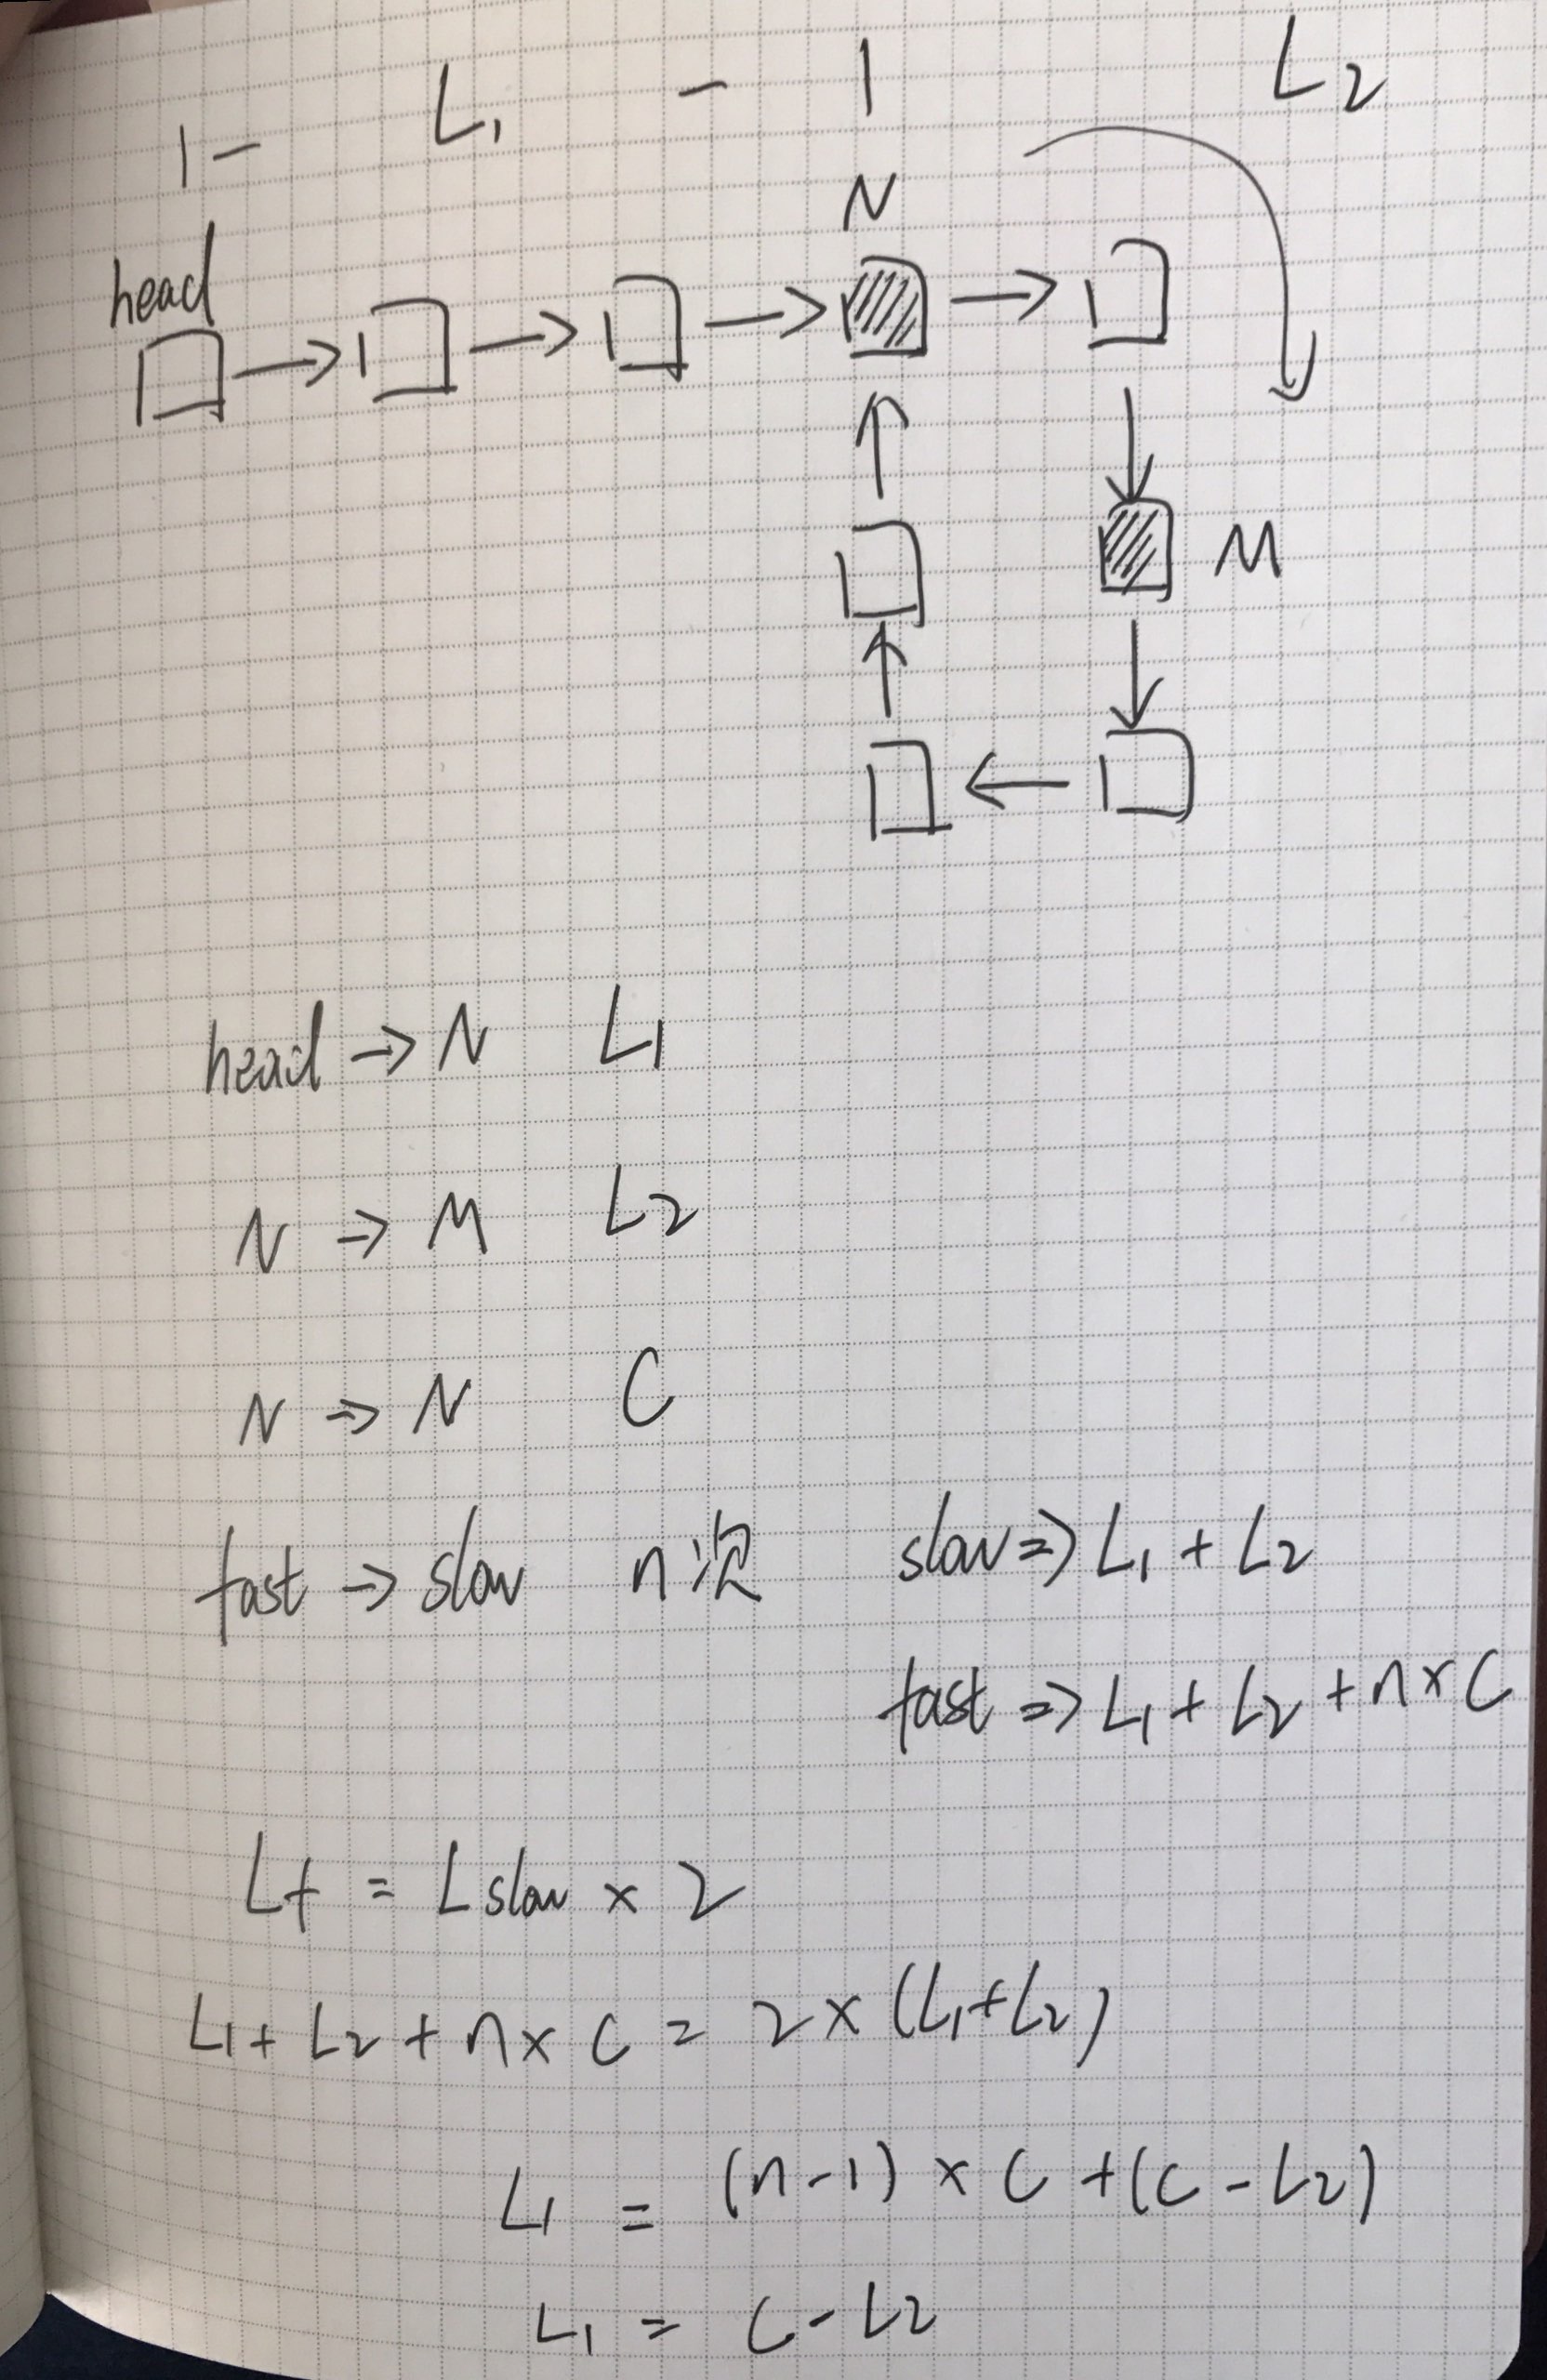 |- L1 - | L2
N
head
M
head → N L1
N → M L2
N → N C
fast → slow n次 slow ⇒ L1 + L2
fast ⇒ L1 + L2 + n × C
Lf = Lslow × 2
L1 + L2 + n × C = 2 × (L1 + L2)
L1 = (n-1) × C + (C - L2)
L1 = C - L2